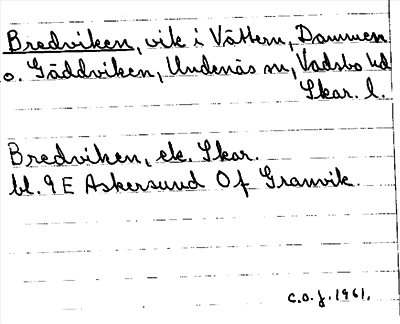 Bredviken, vik i Vättern, Dammen
o. Gäddviken, Undenäs sn, Vadsbo hd
Skar. l.
Bredviken, ek. Skar.
bl. 9 E Askersund Of Granvik.
C.O.J. 1961.